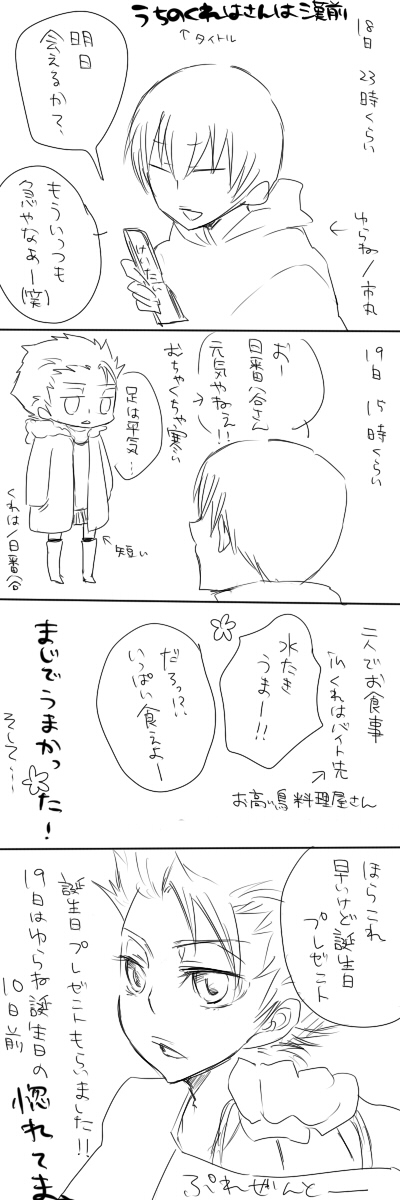 うちのくれはさんは漢前
↑タイトル
18日 23時くらい
明日
会えるか？
もういっつも
急やなぁー(笑)
けいたい
←
ゆらね/市丸
19日 15時くらい
おー
日番谷さん
元気やねぇ!!
→
むちゃくちゃ寒い
足は平気…
↑短い
くれは/日番谷
二人でお食事
inくれはバイト先
↑
お高い鳥料理屋さん
水たき
うまー!!
だろっ!?
いっぱい食えよー
まじでうまかった！
そして…
ほらこれ
早いけど誕生日
プレゼント
誕生日プレゼントもらいました!!
19日はゆらね誕生日の
10日前
惚れてま
ぷれぜんとー